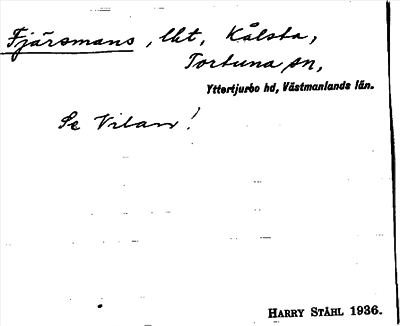 Fjärsmans, lht, Kålsta,
Tortuna sn,
Yttertjurbo hd, Västmanlands län.
Se Vilan!
HARRY STÅHL 1936.